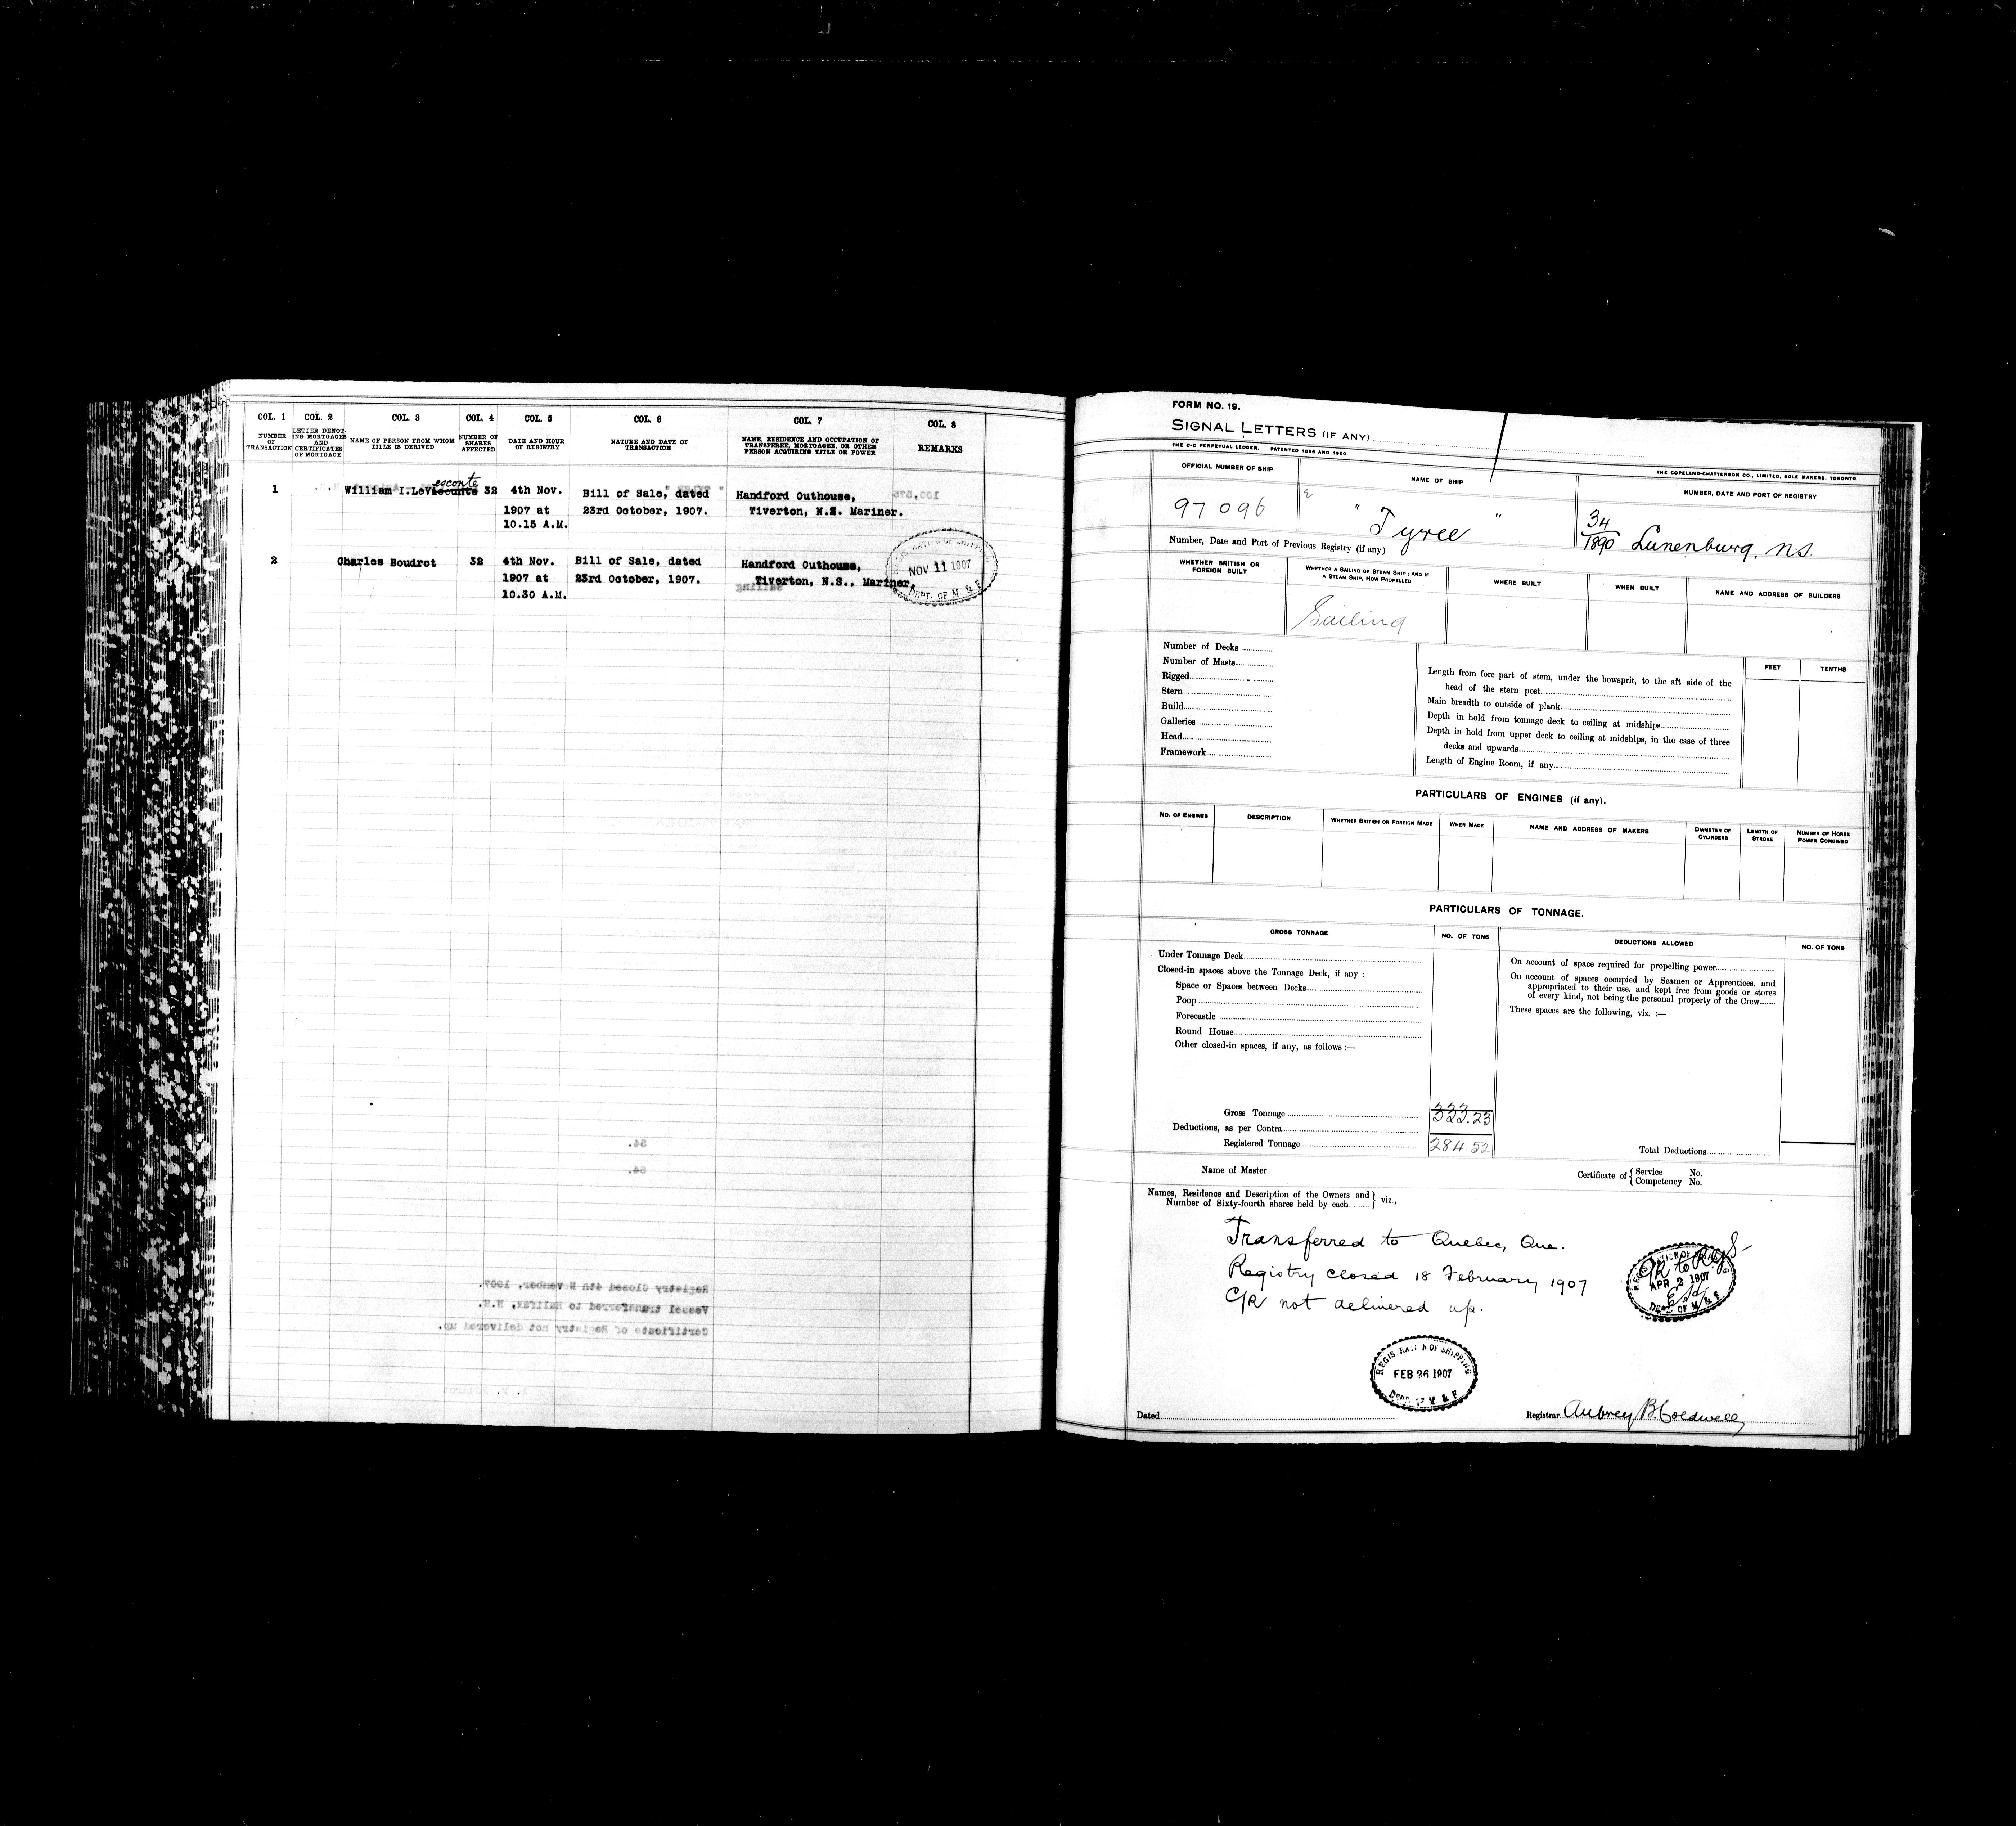 COL. 1 COL. 2 COL. 3 COL. 4 COL. 5 COL. 6 COL. 7 COL. 8
NUMBER OF TRANSACTION
LETTER DENOTING MORTGAGES AND CERTIFICATES OF MORTGAGE
NAME OF PERSON FROM WHOM TITLE IS DERIVED
NUMBER OF SHARES AFFECTED
DATE AND HOUR OF REGISTRY
NATURE AND DATE OF TRANSACTION
NAME, RESIDENCE AND OCCUPATION OF TRANSFEREE, MORTGAGEE, OR OTHER PERSON ACQUIRING TITLE OR POWER
REMARKS
esconte
1 William I.LeViscounte 32 4th Nov. Bill of Sale, dated Handford Outhouse,
1907 at 23rd October, 1907. Tiverton, N.S. Mariner.
10.15 A.M.
2 Charles Boudrot 32 4th Nov. Bill of Sale, dated Handford Outhouse,
1907 at 23rd October, 1907. Tiverton, N.S., Mariner,
10.30 A.M.
NOV 11 1907
DEPT. OF M. & F.
100,575
Sailing
64.
64.
Registry Closed 4th November, 1907.
Vessel transferred to Halifax, N.S.
Certificate of Registry not delivered up.
FORM NO. 19.
SIGNAL LETTERS (IF ANY)
THE C-C PERPETUAL LEDGER. PATENTED 1896 AND 1900
THE COPELAND-CHATTERSON CO., LIMITED, SOLE MAKERS, TORONTO
OFFICIAL NUMBER OF SHIP NAME OF SHIP NUMBER, DATE AND PORT OF REGISTRY
97096 " Tyree " 34/1890 Lunenburg, N.S.
Number, Date and Port of Previous Registry (if any)
WHETHER BRITISH OR FOREIGN BUILT
WHETHER A SAILING OR STEAM SHIP; AND IF A STEAM SHIP, HOW PROPELLED
WHERE BUILT
WHEN BUILT
NAME AND ADDRESS OF BUILDERS
Sailing
Number of Decks
Number of Masts
Rigged
Stern
Build
Galleries
Head
Framework
FEET TENTHS
Length from fore part of stem, under the bowsprit, to the aft side of the
head of the stern post
Main breadth to outside of plank
Depth in hold from tonnage deck to ceiling at midships
Depth in hold from upper deck to ceiling at midships, in the case of three
decks and upwards
Length of Engine Room, if any
PARTICULARS OF ENGINES (if any).
NO. OF ENGINES DESCRIPTION WHETHER BRITISH OR FOREIGN MADE WHEN MADE NAME AND ADDRESS OF MAKERS DIAMETER OF CYLINDERS LENGTH OF STROKE NUMBER OF HORSE POWER COMBINED
PARTICULARS OF TONNAGE.
GROSS TONNAGE NO. OF TONS DEDUCTIONS ALLOWED NO. OF TONS
Under Tonnage Deck
Closed-in spaces above the Tonnage Deck, if any :
Space or Spaces between Decks
Poop
Forecastle
Round House
Other closed-in spaces, if any, as follows :—
On account of space required for propelling power
On account of spaces occupied by Seamen or Apprentices, and
appropriated to their use, and kept free from goods or stores
of every kind, not being the personal property of the Crew
These spaces are the following, viz. :—
Gross Tonnage 322.23
Deductions, as per Contra
Registered Tonnage 284.52
Total Deductions
Name of Master
Certificate of { Service No.
{ Competency No.
Names, Residence and Description of the Owners and } viz.,
Number of Sixty-fourth shares held by each
Transferred to Quebec, Que.
Registry closed 18 February 1907
C/R not delivered up.
APR 2 1907
DEPT. OF M. & F.
REGISTRATION OF SHIPPING
FEB 26 1907
DEPT. OF M. & F.
Dated
Registrar Aubrey B. Coldwell